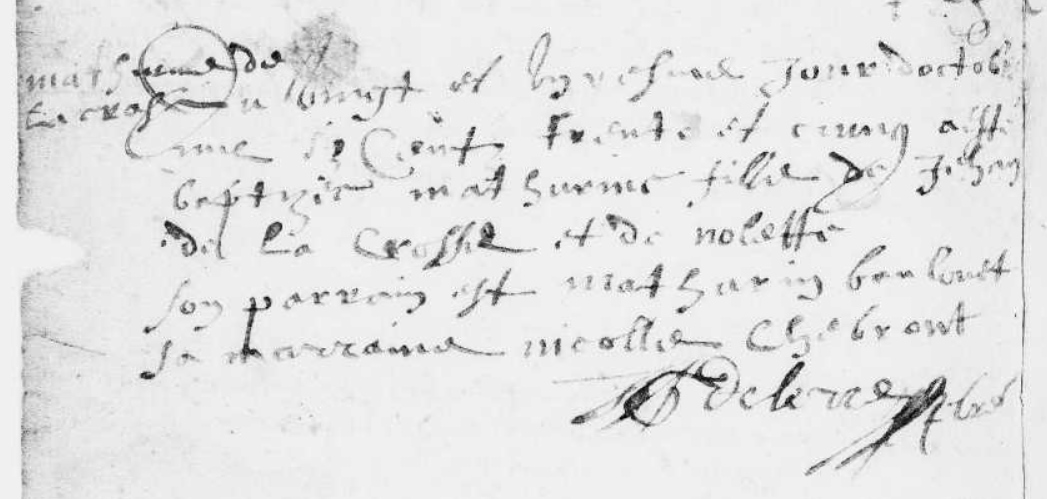 mathurine de
La crosse
Du vingt et huresme Jour doctobre
mil six Cent trente et cinq a este
baptizée mathurine fille de Jehan
de La Crosse et de nolette
son parrain est mathurin boulouet
sa marraine nicolle Chebrout